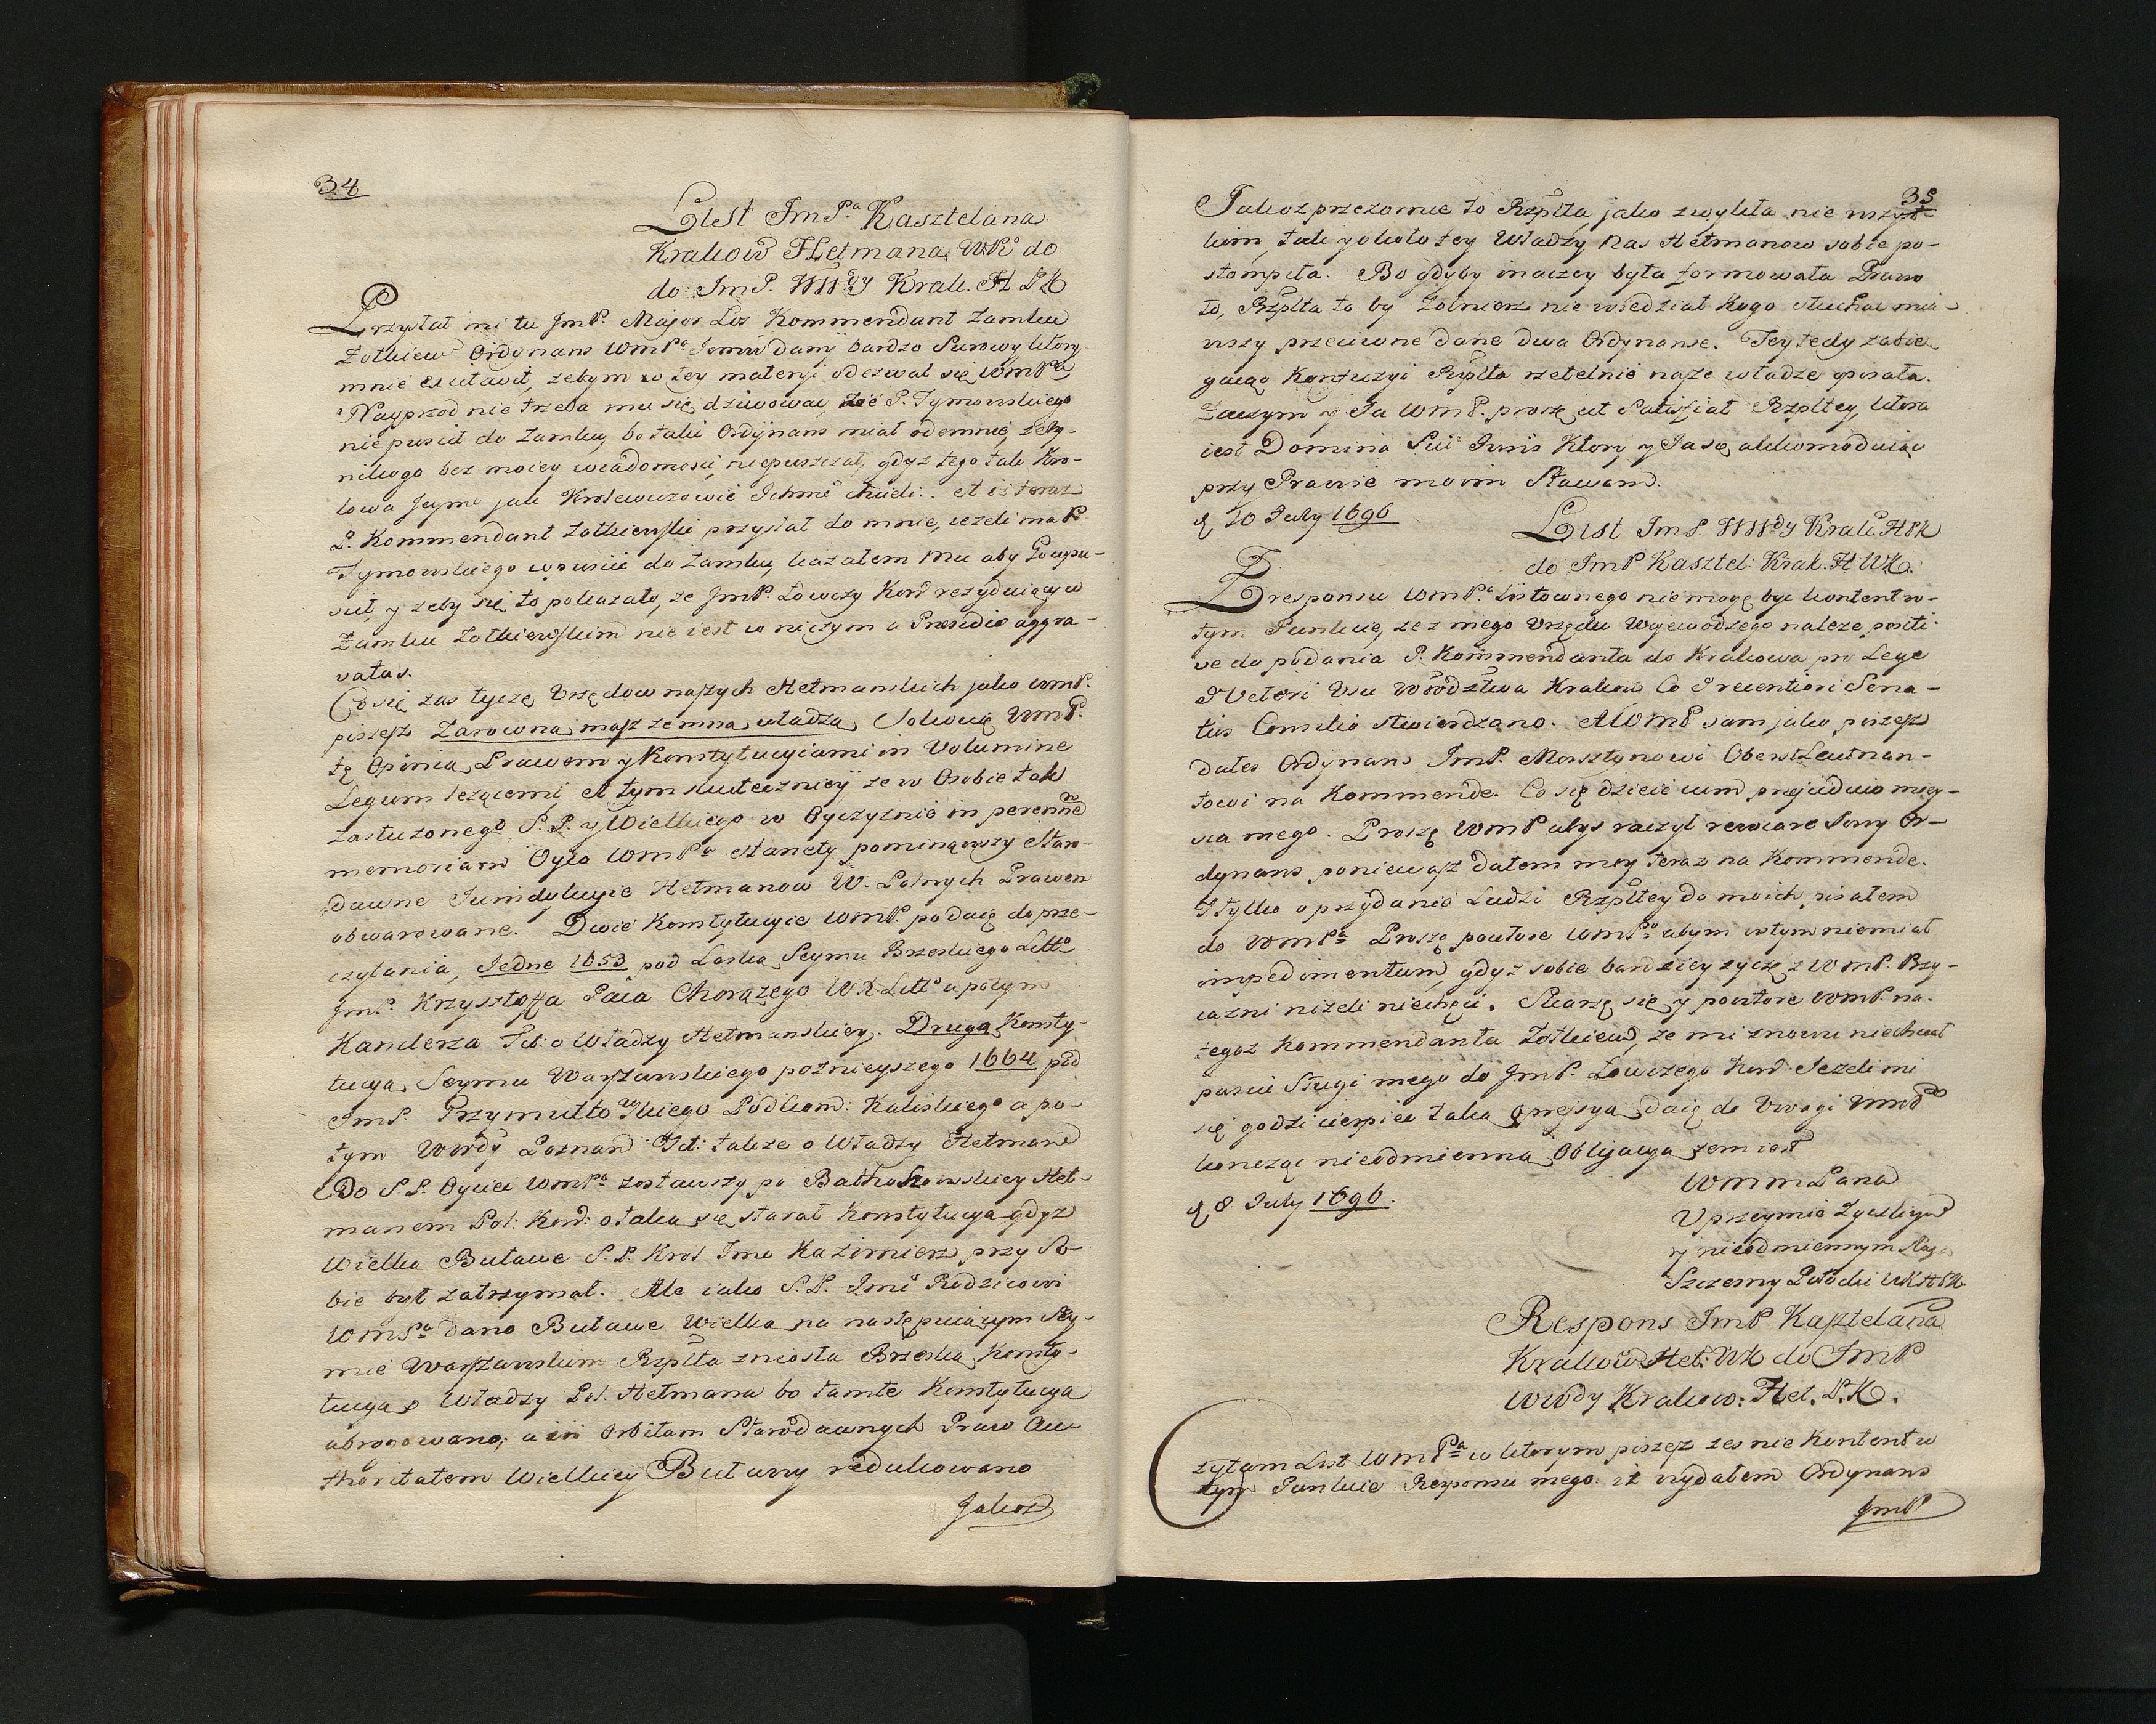 34
List JmP.a Kasztelana
Krakow Hetmana WK.o do
do JmP. WWdy Krak. H P K
Przysłał mi tu JmP. Major Los Kommendant Zamku
Zołkiew Ordynans WmP.a Jemu dany bardzo Surowy ktory
mnie, zebym w tey materyi odezwał się WmP.a
Nayprzod nie trzeba mu się dziwować, ze P. Tymowskiego
nie puscił do Zamku, bo taki Ordynans miał odemnie, zeby
nikogo bez moiey wiadomosci niepuszczał, gdyz tego tak Kro-
lowa Jeymc jak Krolewicowie Ichmc chcieli. A iz teraz
P. Kommendant Zołkiewski przysłał do mnie, iezeli ma P.
Tymowskiego wpuscic do Zamku, kazałem Mu aby Go wpu-
scił, y zeby się to pokazało, ze JmP. Łowczy Kor. rezyduiący w
Zamku Zołkiewskim nie iest w niczym a Præsidio aggra-
vatus.
Co się zas tycze, Vrzędow naszych Hetmanskich jako WmP.
piszesz Zarowna masz ze mna władza, Solwuię WmP.
tę Opinia, Prawem y Konstytucyiami in Volumine
Legum lezącemi, A tym skuteczniey ze w Osobie tak
zasłuzonego S. P. y Wielkiego w Oyczyznie in perenne
memoriam Oyca WmP.a stanęły pominąwszy Staro-
dawne Jurisdykcyie Hetmanow W. Polnych Prawem
obwarowane. Dwie Konstytucyie WmP. podaię do prze-
czytania, Jedne 1653 pod Laska Seymu Brzeskiego Litto
JmP. Krzysztoffa Paca Chorązego WX Litto a potym
Kanclerza Tit: o Władzy Hetmanskiey. Druga Konsty-
tucya, Seymu Warszawskiego poznieyszego 1664 pod
JmP. Przymuskiego Podkom: Kaliskiego a po-
tym Wwdy Poznan Tit: takze o Władzy Hetman
Do S P. Oyciec WmP.a zostawszy po Hetmanstwie Het-
manem Pol: Kor: o taka się starał Konstytucya gdyz
Wielka Buławe S. P. Krol Jmc Kazimierz przy So-
bie był zatrzymał. Ale iako S. P. Jmc Rodzicowi
WmP.a dano Buławe Wielka na następuiącym Sey-
mie Warszawskim Rzplta zniosła Brzeska, Konsty-
tucya, o Władzy Pol. Hetmana bo tamte Konstytucya
abrogowano, a in orbitam Starodawnych Praw Au-
thoritatem Wielkiey Buławy redukowano
Jakoz
35
Jakoz przezornie to Rzplta jako zwykła nie wszyst-
kim, tak y około tey Władzy Nas Hetmanow sobie po-
stompiła. Bo gdyby inaczey była formowała Prawo
to, Rzplta to by Zołnierz nie wiedział Kogo słuchac mia-
wszy przeciwne dane dwa Ordynanse. Tey tedy zabie-
gaiąc Konfuzyi Rzplta rzetelnie nasze władze opisała.
Zaczym y Ja WmP. proszę ut Satisfiat Rzpltey, ktora
iest Domina Sui Juris Ktory y Ja się akkomoduiąc
przy Prawie moim Stawam.
d 10 July 1696
List JmP. WWdy Krak. HPK
do JmP Kasztel: Krak. H WK.
Z responsu WmP.a Listownego nie mogę byc kontent w
tym Punkcie, ze z mego Vrzędu Woiewodzego nalezę positi-
ve do podania P. Kommendanta do Krakowa pro Lege
J Veteri Usu Wodztwa Krakow Co J recentiori Sena-
tus Consilio stwierdzono. A WmP sam jako piszesz
dałes Ordynans JmP. Morsztynowi Oberst Leutnan-
towi na Kommende. Co się dzieie cum prejudicio miey-
sca mego. Proszę WmP abys raczył rewocare Swoy Or-
dynans poniewasz Dałem moy teraz na Kommende.
J tylko o przydanie Ludzi Rzpltey do moich pisałem
do WmP.a Proszę powtore WmP.a abym w tym niemiał
impedimentum, gdyz sobie bardziey zyczę z WmP. Przy-
iazni nizeli niechęci. Skarzę się y powtore WmP. na
tegoz Kommendanta Zołkiew, ze mi znowu niechciał
puscic Sługi mego do JmP. Łowczego Kor Jezeli mi
się godzi cierpiec taka opresya, daię do Vwagi WmP.
koncząc nieodmienna Obligacya zem iest
WmmPana
Vprzeymie Zyczliwym
y nieodmiennym Sługa
Szczesny Potocki WK HPK
d 8 July 1696.
Respons JmP Kasztelana
Krakow Het: WK do JmP
WWdy Krakow: Het. P. K.
Czytam List WmP.a w ktorym piszesz zes nie Kontent w
tym Punkcie Responsu mego: iz wydałem Ordynans
JmP